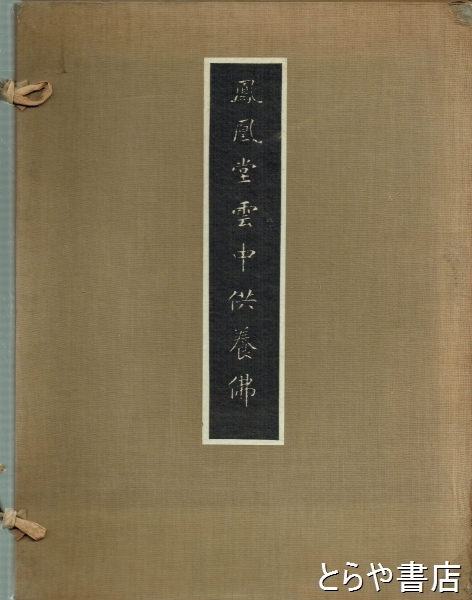 鳳凰堂雲中供養佛
とらや書店